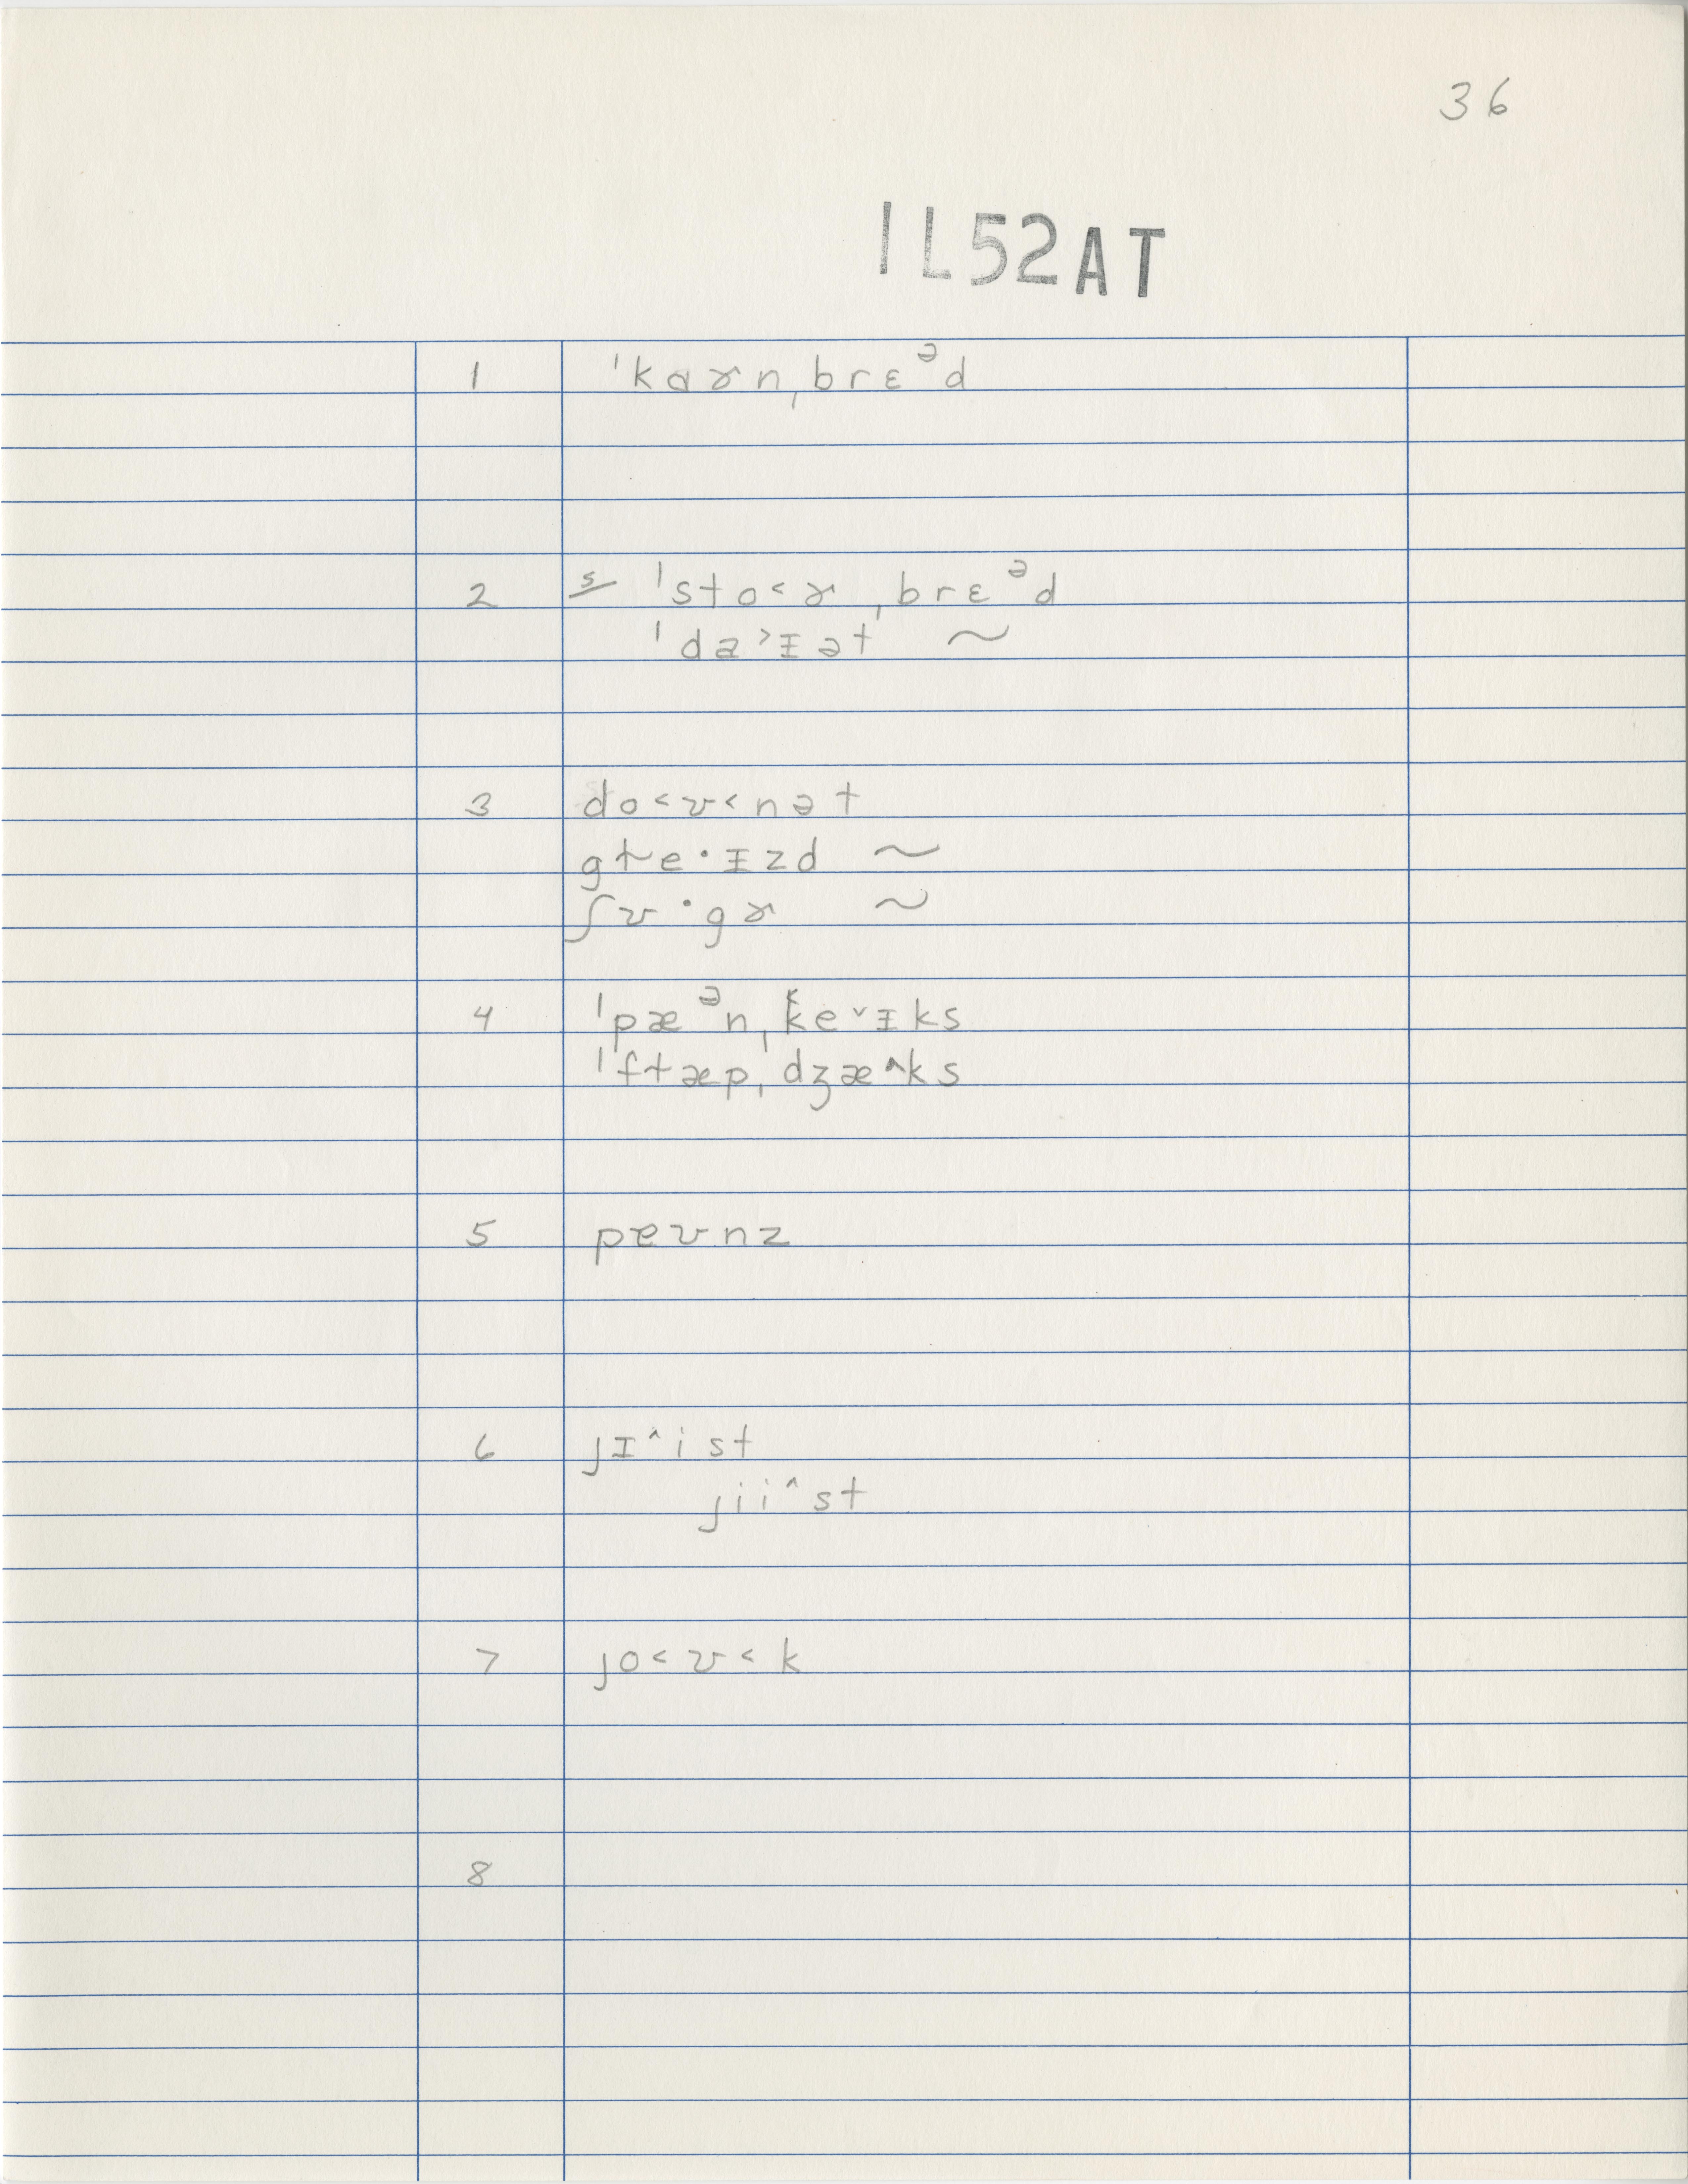 36
IL52AT
1 ˈkɑɚnˌbrɛᵊd
2 s/ ˈsto˂ɚ ˌbrɛᵊd
ˈda˃ɪət ~
3 do˂ʊ˂nət
gɫe·ɪzd ~
ʃʊ·gɚ ~
4 ˈpæᵊnˌke˅ɪks
ˈfɫæpˌdʒæ^ks
5 pæʊnz
6 jɪ^ist
jii^st
7 jo˂ʊ˂k
8